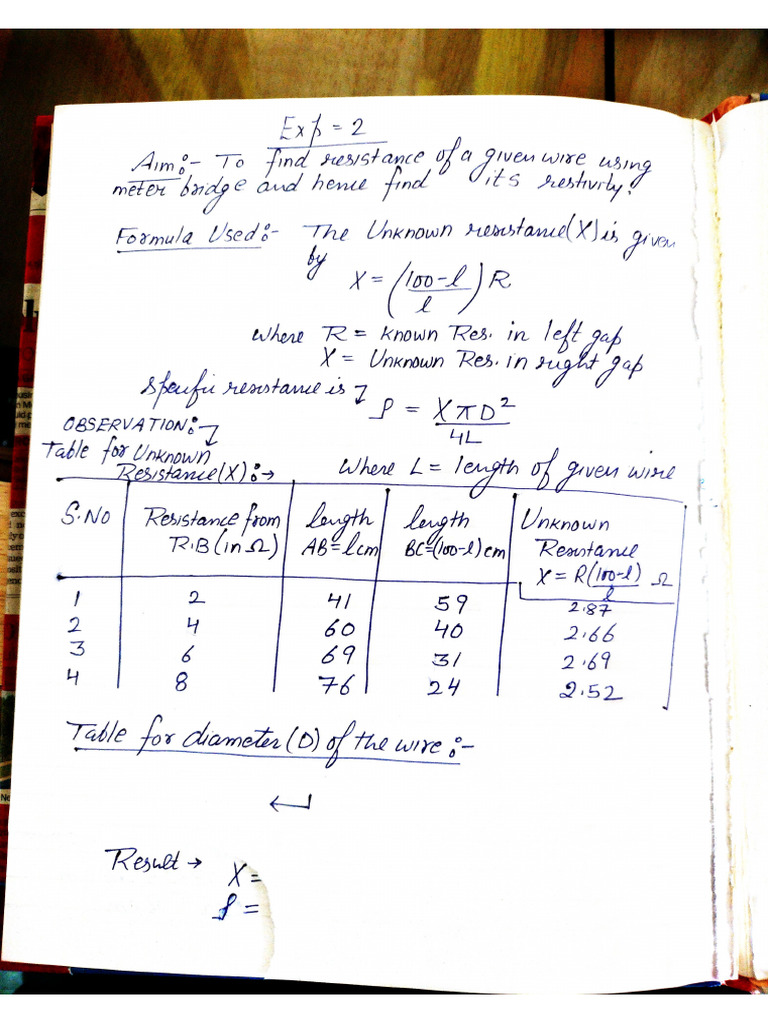 Exp = 2
Aim:- To find resistance of a given wire using
meter bridge and hence find its restivity.
Formula Used:- The Unknown resistance (X) is given
by
X = (100-l / l) R
where R = known Res. in left gap
X = Unknown Res. in right gap
Specific resistance is ↴
ρ = XπD² / 4L
OBSERVATION:
Table for Unknown
Resistance (X):→
where L = length of given wire
S.NO | Resistance from R.B (in Ω) | length AB = l cm | length BC = (100-l) cm | Unknown Resistance X = R(100-l)/l Ω
1 | 2 | 41 | 59 | 2.87
2 | 4 | 60 | 40 | 2.66
3 | 6 | 69 | 31 | 2.69
4 | 8 | 76 | 24 | 2.52
Table for diameter (D) of the wire:-
Result →
X =
ρ =